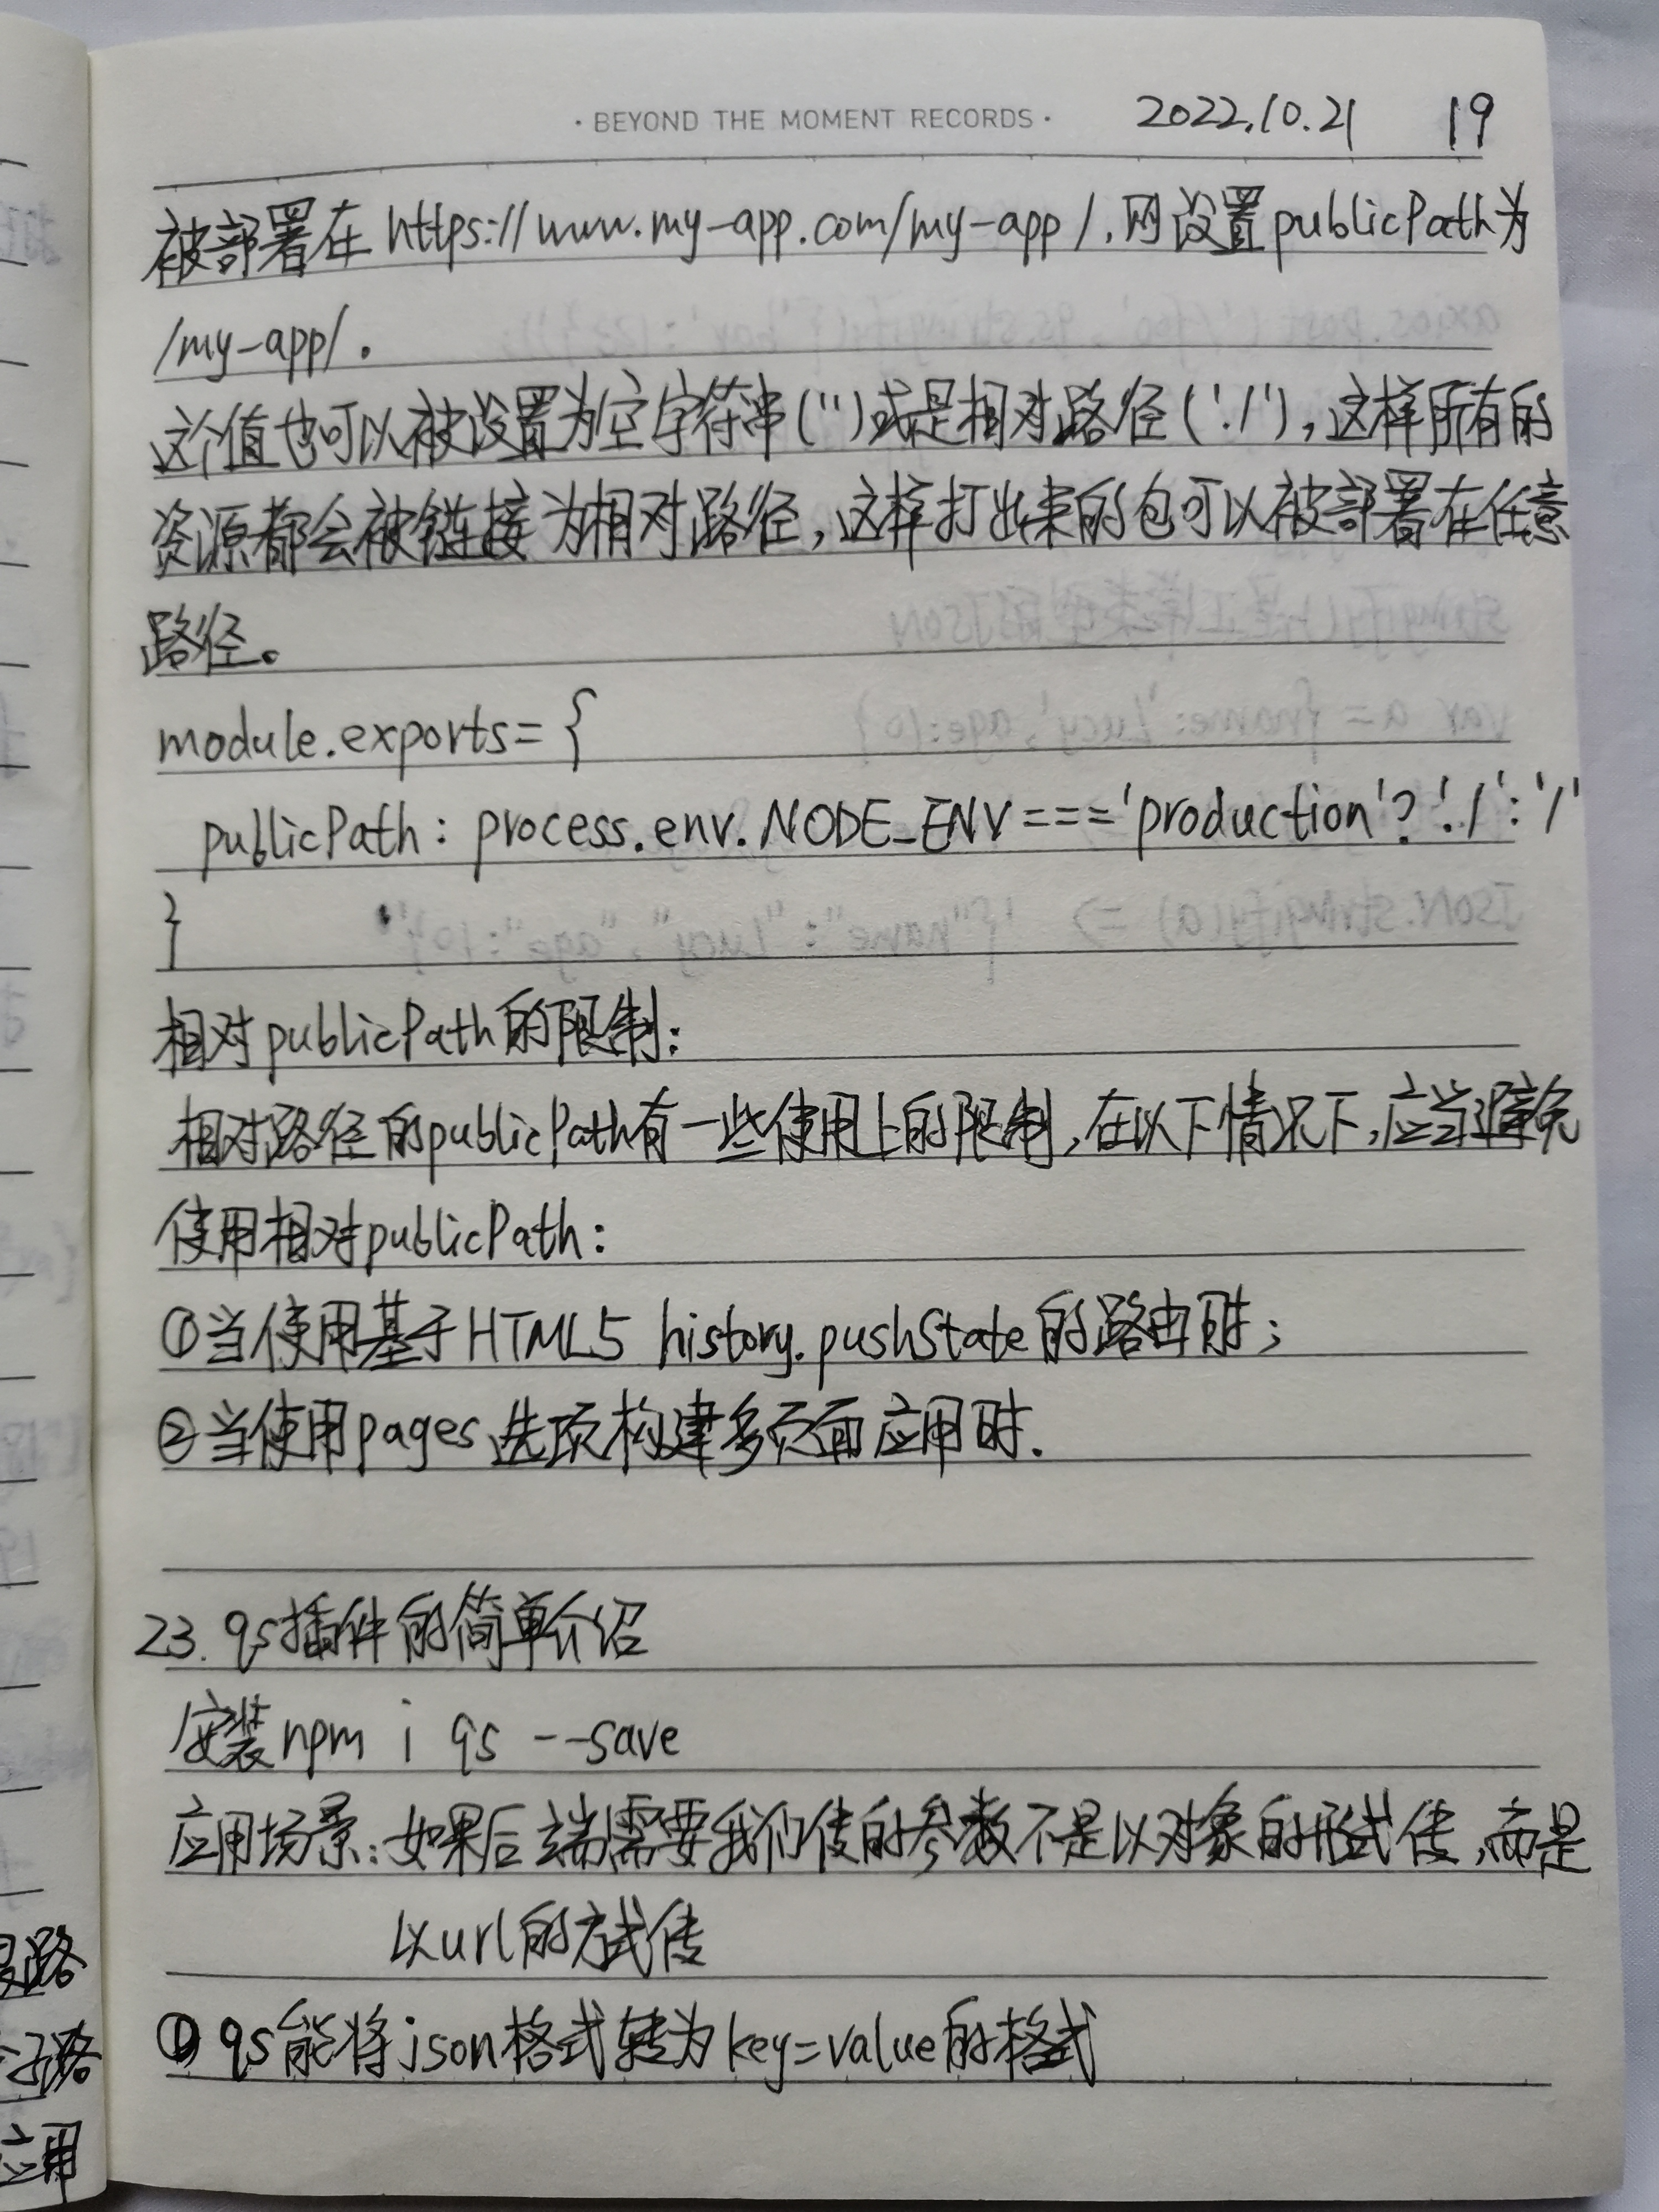 · BEYOND THE MOMENT RECORDS · 2022.10.21 19
被部署在 https://www.my-app.com/my-app/,网设置publicPath为
/my-app/.
这个值也可以被设置为空字符串('')或是相对路径('./'),这样所有的
资源都会被链接为相对路径,这样打出来的包可以被部署在任意
路径。
module.exports={
publicPath: process.env.NODE_ENV==='production'?'./':'/'
}
相对publicPath的限制:
相对路径的publicPath有一些使用上的限制,在以下情况下,应当避免
使用相对publicPath:
①当使用基于HTML5 history.pushState的路由时;
②当使用pages选项构建多页面应用时.
23. qs插件的简单介绍
安装npm i qs --save
应用场景:如果后端需要我们传的参数不是以对象的形式传,而是
以url的方式传
① qs能将json格式转为key=value的格式
路
子路
应用